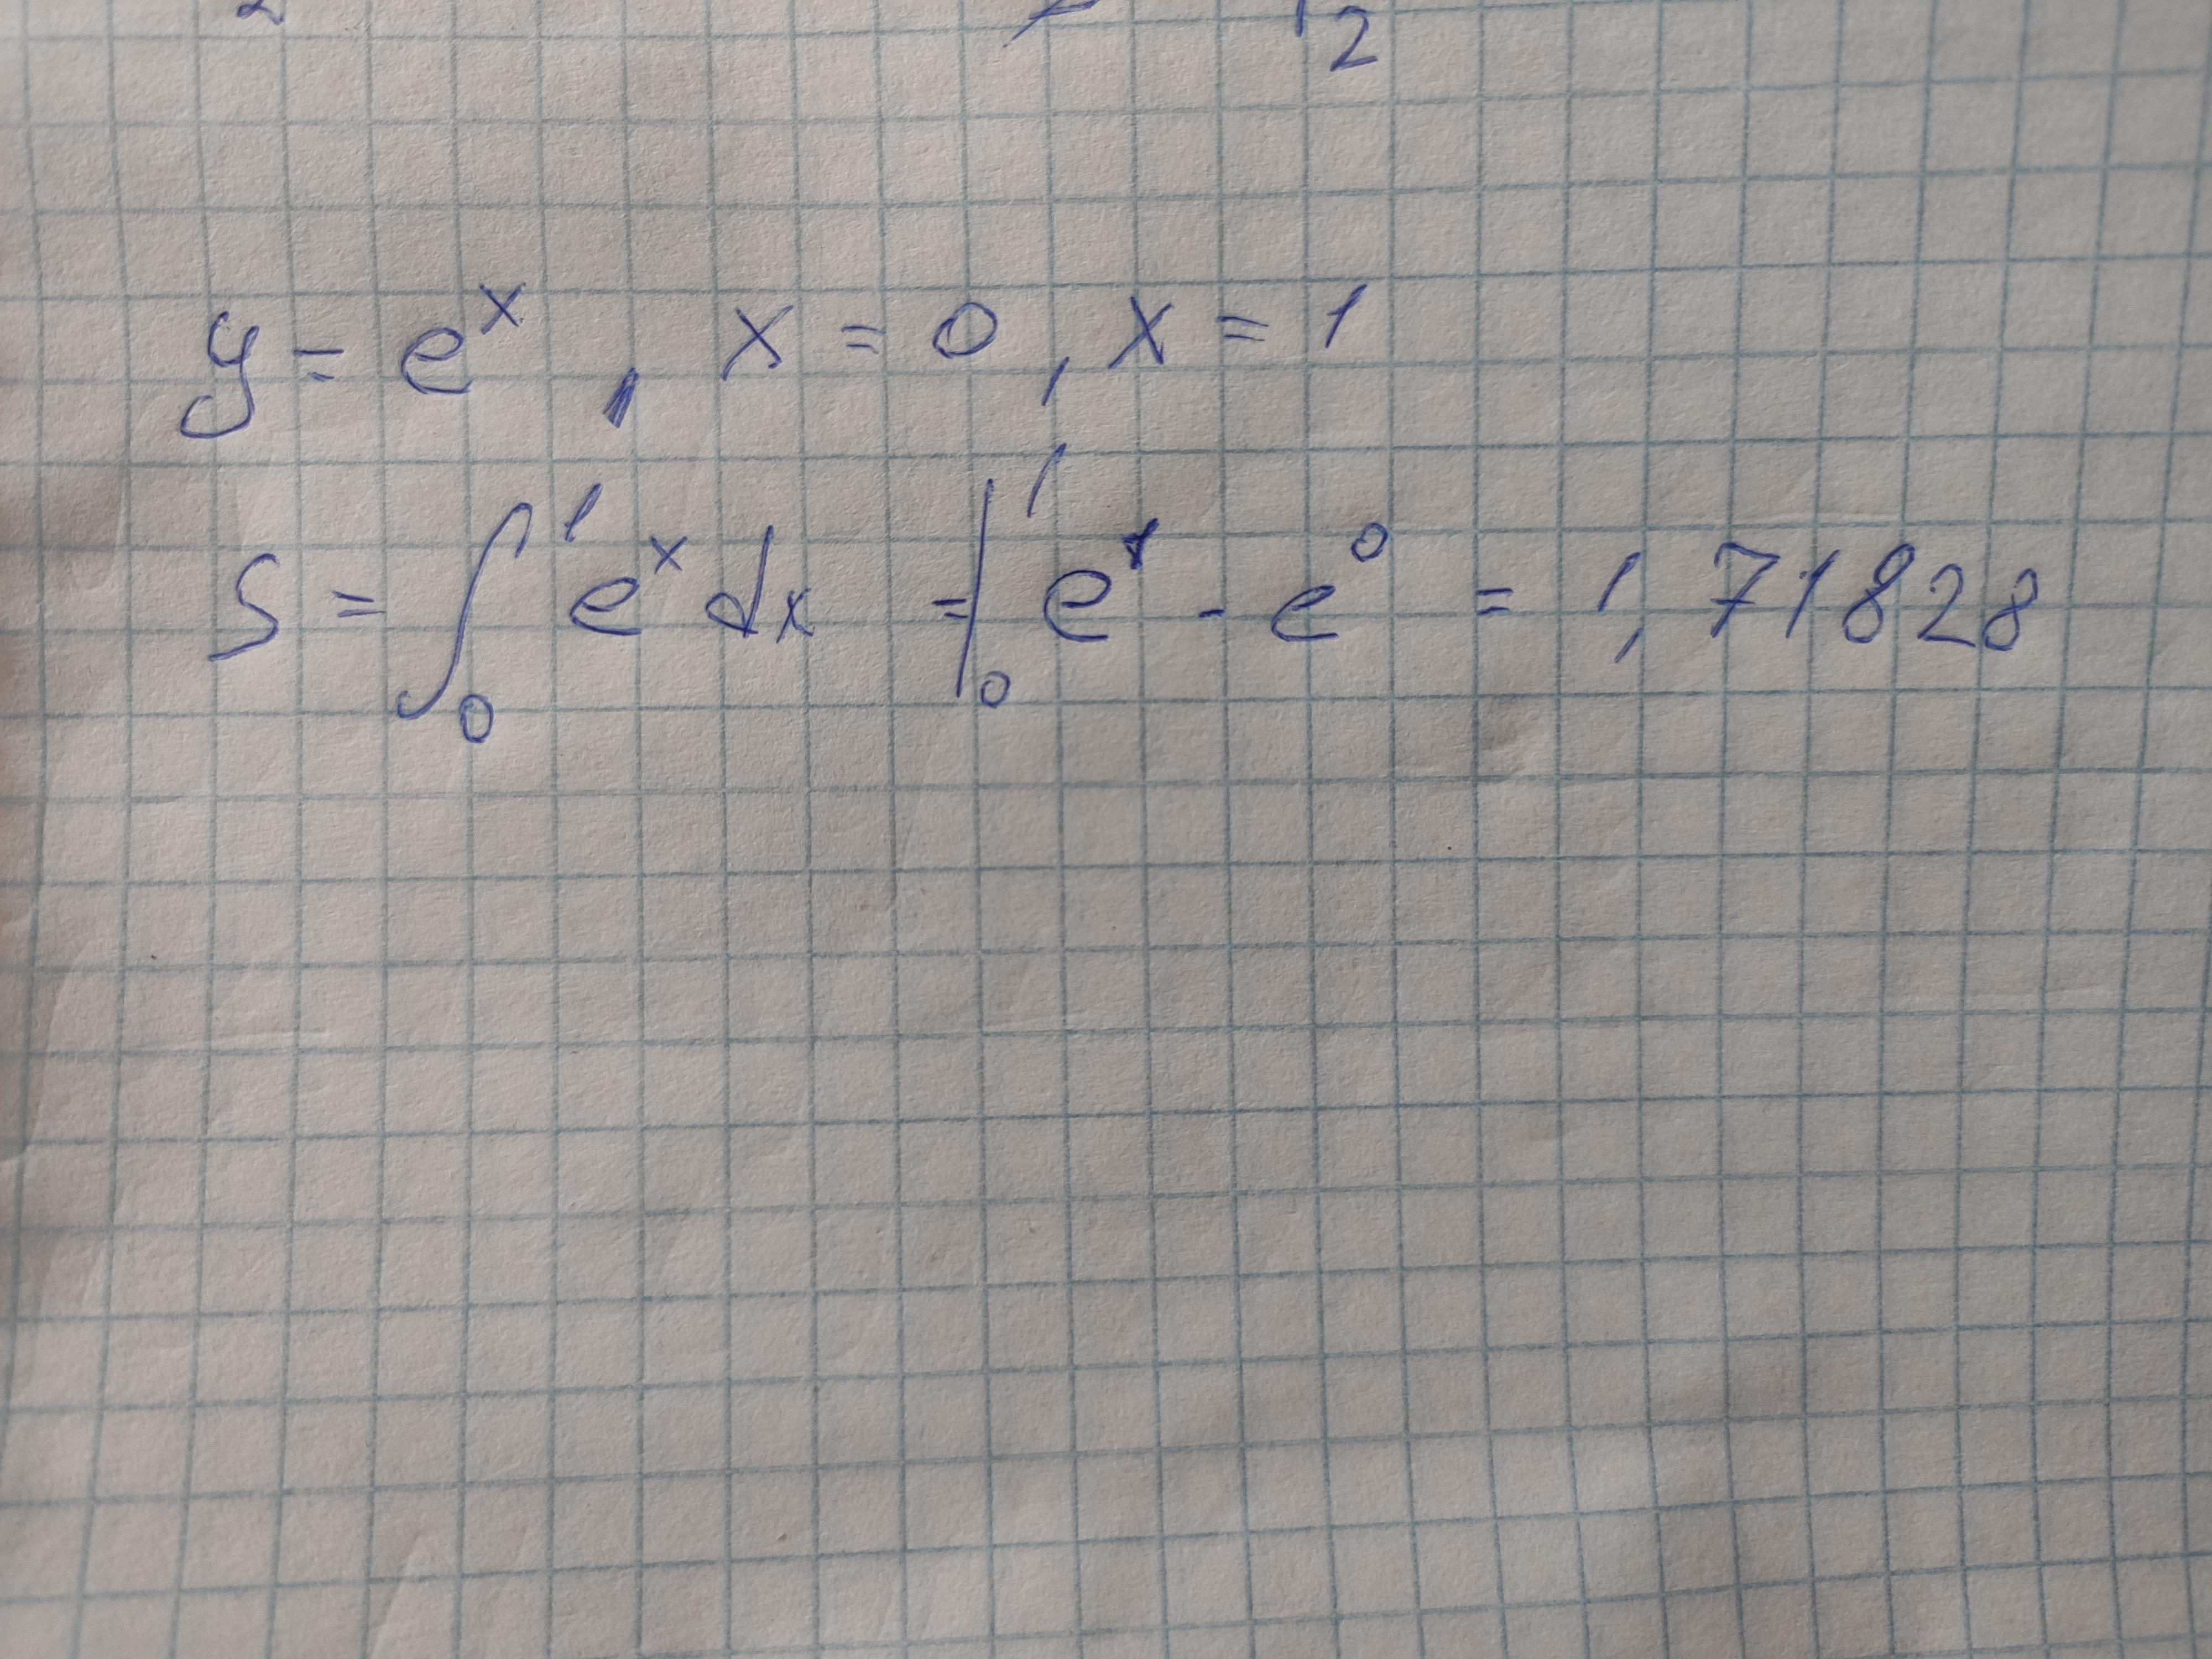 2 1/2
y = e^x, x = 0, x = 1
S = ∫₀¹ e^x dx = |₀¹ e^1 - e^0 = 1,71828